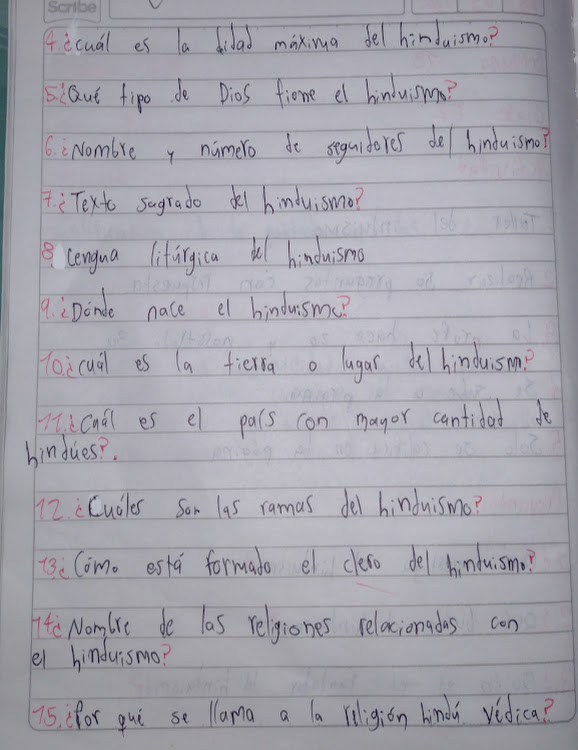 Scribe
4.¿cuál es la didad máxima del hinduismo?
5.¿Qué tipo de Dios tiene el hinduismo?
6.¿Nombre y número de seguidores del hinduismo?
7.¿Texto sagrado del hinduismo?
8 Lengua litúrgica del hinduismo
9.¿Dónde nace el hinduismo?
10.¿cuál es la tierra o lugar del hinduismo?
11.¿Cuál es el país con mayor cantidad de
hindúes?.
12.¿Cuáles son las ramas del hinduismo?
13¿Cómo está formado el clero del hinduismo?
14¿Nombre de las religiones relacionadas con
el hinduismo?
15.¿Por qué se llama a la religión hindú védica?